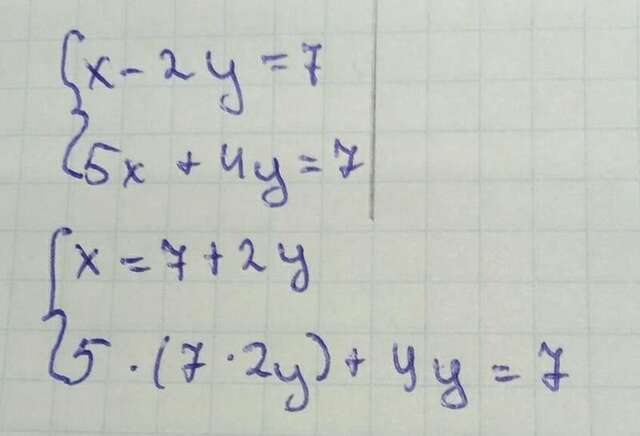 x - 2y = 7
5x + 4y = 7
x = 7 + 2y
5 · (7 · 2y) + 4y = 7